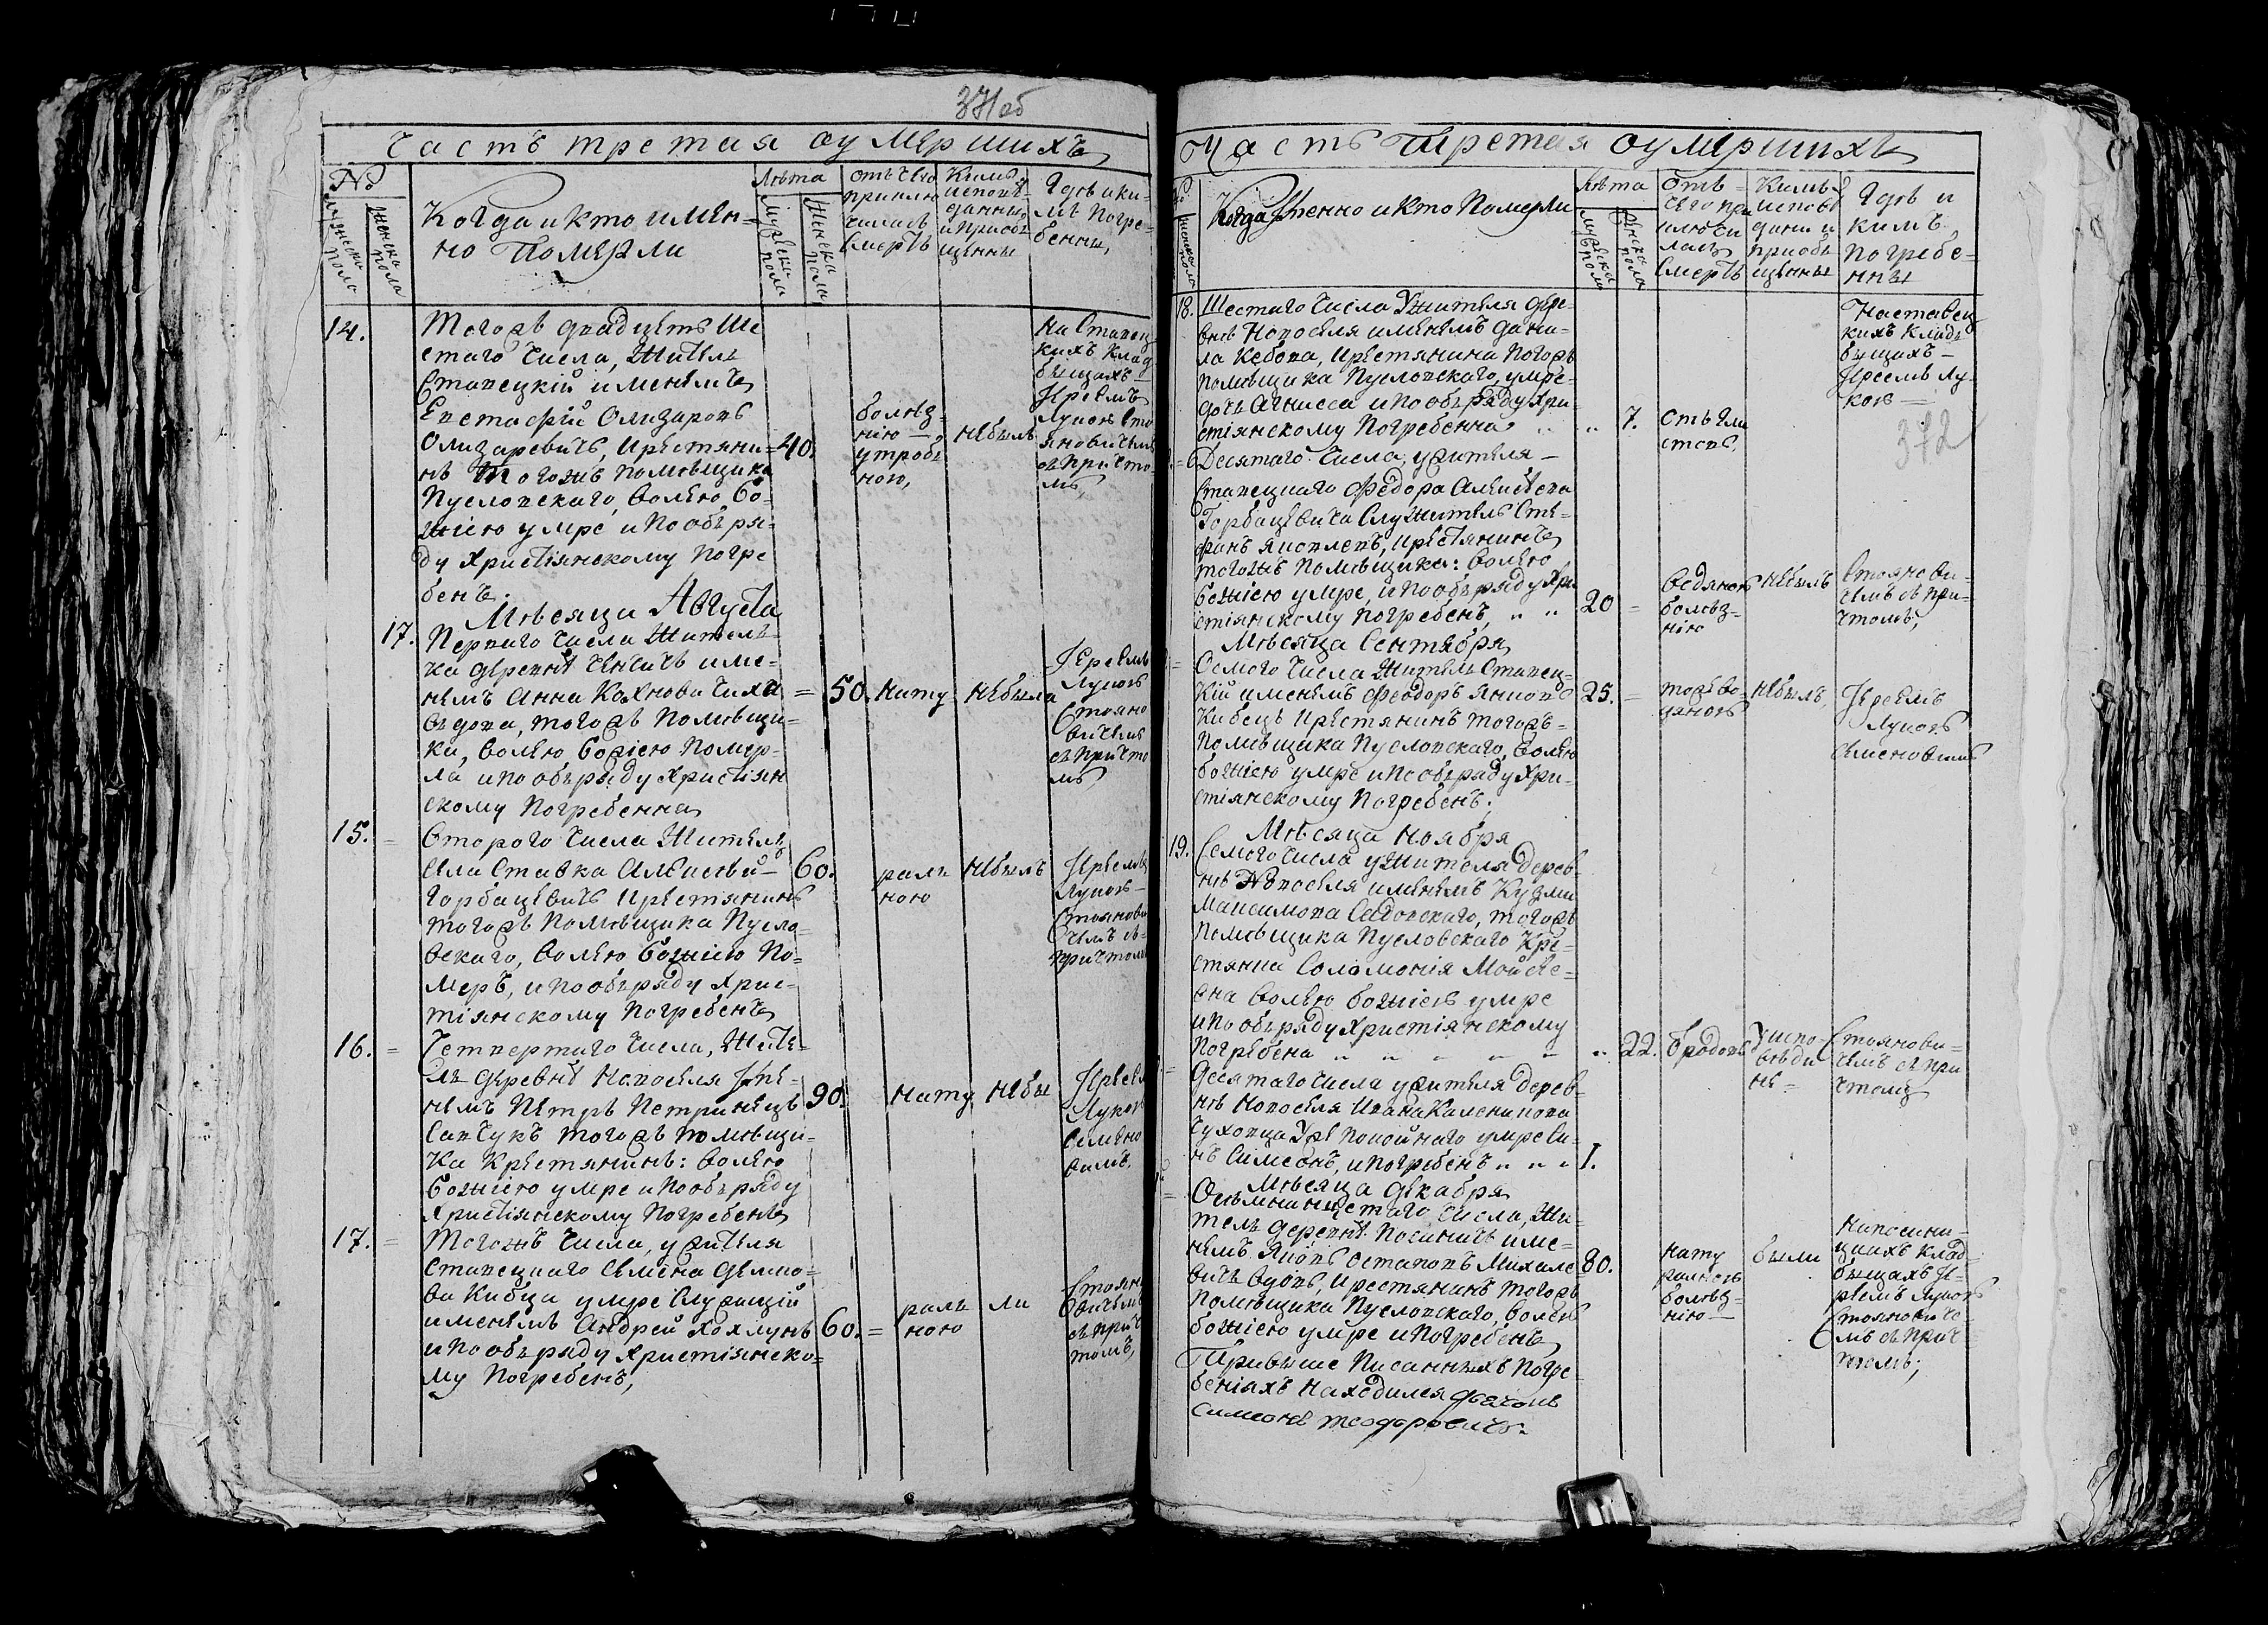 371 об
Часть третая оумершихъ
№
мужеска пола
Женска пола
Когда и кто имен=
но Померли
Лѣта
Мужеска пола
Женска пола
отъ чего
приклю
чилась
Смерть
Кѣмъ
исповѣ-
данны
и приоб
щенны
Гдѣ и кѣ-
мъ погре-
бенны,
14.
Тогожъ двадцеть Ше
стаго Числа, Житель
Ставецкій именемъ
Евстафій Олизаровъ
Олизаревичъ, Крестяни=
нъ Тогожъ помѣщика
Пусловскаго, волею Бо-
жіею умре и по обря-
ду Христіянскому погре
бенъ.
40.
болѣз-
нію —
утроб
ною,
небылъ
На Ставец
кихъ клад
бищахъ —
Іереемъ
Лукою Сто
яновичемъ
съ причто
мъ,
Мѣсяца Августа
17.
Перваго Числа Житель-
ка деревнѣ Ченчичъ име-
немъ Анна Кахновичиха
вдова, тогожъ помѣщи-
ка, волею Божіею помер-
ла и по обряду Христіян
скому Погребенна
= 50. Нату Небыла
Іереемъ
Лукою
Стояно
вичемъ
съ причто
мъ,
15. =
Второго Числа Житель
села Ставка Алексѣй
Горбацевичъ Крестянинъ
тогожъ Помѣщика Пусло-
вскаго, волею Божіею По-
меръ, и по обряду Хрис-
тіянскому Погребенъ
60.
Небылъ
Іереемъ
Лукою
Стоянови
чемъ съ
причтомъ
16. =
Четвертаго Числа, Жите-
ль деревнѣ Новоселя Име-
немъ Петръ Петринецъ
Савчукъ тогожъ помѣщи-
ка Крестянинъ: волею
Божіею умре и по обряду
Христіянскому Погребенъ
90. Нату Небы
Іереемъ
Лукою
17. =
Тогожъ Числа, у жителя
Ставецкаго Семена Демко-
ва Кибца умре Служащій
именемъ Андрей Хохлунъ
и по обряду Христіянско=
му Погребенъ,
60. =
ли
Стояно
вичемъ
съ прич
томъ,
Часть Третая оумершихъ
Когда Именно и кто Померли
Лѣта
Мужеска пола
Женска пола
Отъ
чего при
ключи
лась
Смерть
Кѣмъ
исповѣ
дани и
приобъ
щенны
Гдѣ и
кѣмъ
погребе-
нны
372
18.
Шестаго Числа У жителя дере-
внѣ Новоселя именемъ Дани-
ла Кебова, Крестянина тогожъ
помѣщика Пусловскаго, умре-
дочь Агнисса и по обряду Хри-
стіянскому Погребенна „ „
7.
Отъ Гли
стовъ,
На Ставец
кихъ Кладъ
бищахъ —
Іереемъ Лу-
кою —
Десятаго Числа, у жителя —
Ставецкаго Федора Алексѣева
Горбацевича Служитель Сте-
фанъ Яковлевъ, Крестянинъ
тогожъ Помѣщика: волею
божіею умре, и по обряду Хри
стіянскому погребенъ, „ „
20 =
Водяною
болѣз-
нію
Небылъ
Стоянови-
чемъ съ при-
чтомъ,
Мѣсяца Сентября
Осмого Числа Житель Ставец-
кій именемъ Феодоръ Янковъ
Кибецъ Крестянинъ тогожъ-
Помѣщика Пусловскаго, волею
божіею умре и по обряду Хри-
стіянскому Погребенъ;
25. =
Небылъ,
Іереемъ
Лукою
Мѣсяца Ноября
19.
Семого Числа у жителя Дерев-
нѣ Новоселя именемъ Кузми
Максимова Садовскаго, тогожъ
Помѣщика Пусловскаго Кре-
стянка Соломонія Мойсее-
вна волею божіею умре
и по обряду Христіянскому
Погребена „ „ „ „ „ „ 22.
Испо-
вѣда
на =
Стоянови-
чемъ съ при
чтомъ
Десятаго числа у жителя дерев-
нѣ Новоселя Ивана Каленикова
Сухопца Уже покойнаго умре сы-
нъ Симеонъ, и погребенъ „ „ „ 1.
Мѣсяца Декабря
Осьмнанцетаго Числа, Жи-
тель деревнѣ Посиничъ име-
немъ Яковъ Остаповъ Михале
вичъ вдовъ, Крестянинъ тогожъ
помѣщика Пусловскаго, волею
божіею умре и погребенъ
80.
нату
ралною
болѣз-
нію —
были
На посини-
цкихъ клад
бищахъ Іе-
реемъ Лукою
Стояновиче-
мъ съ прич
томъ;
При выше Писанныхъ погре
беніяхъ Находился дьячокъ
Симеонъ Теодоровичъ.